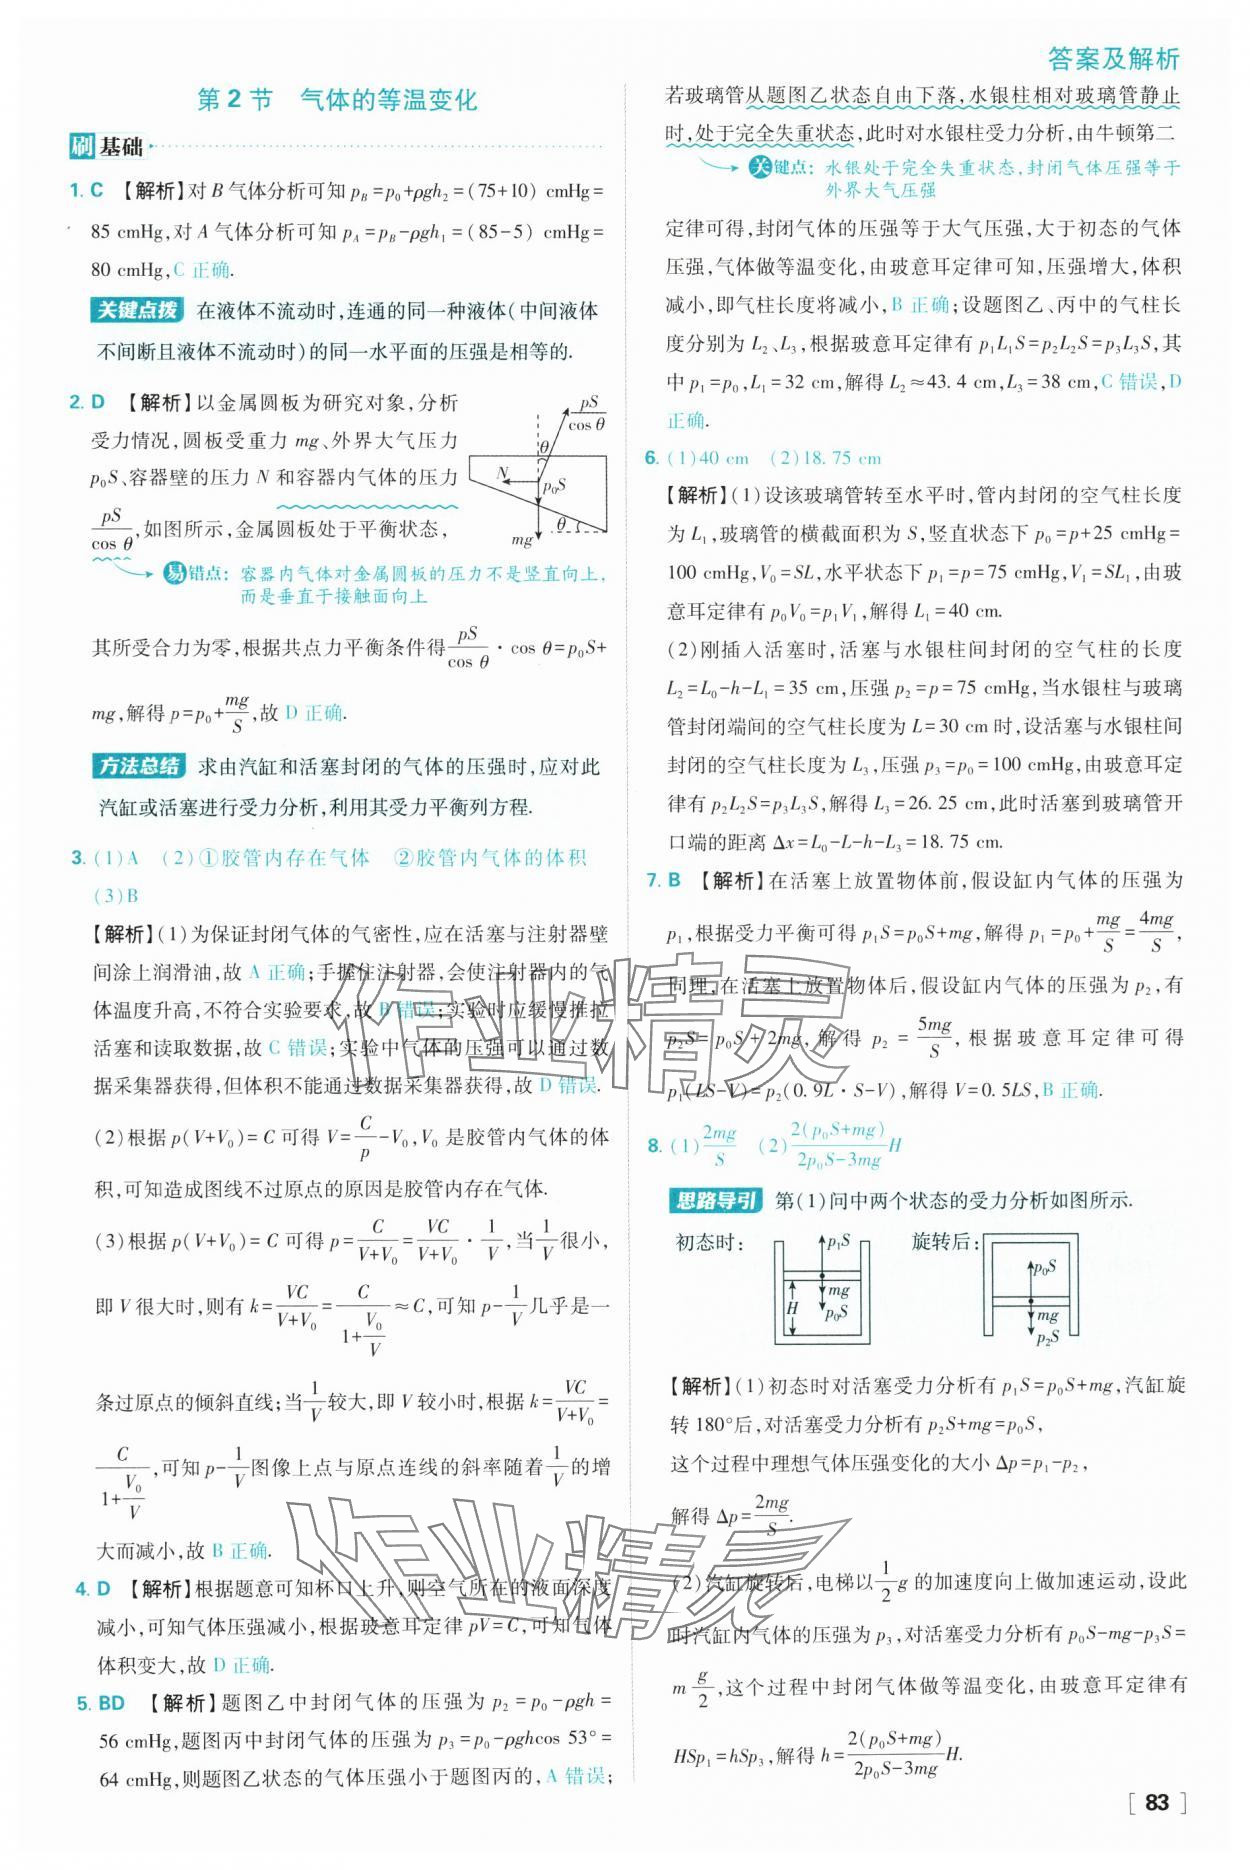 答案及解析
第2节 气体的等温变化
刷基础
1. C 【解析】对 B 气体分析可知 p_B=p_0+ρgh_2=(75+10) cmHg=
85 cmHg,对 A 气体分析可知 p_A=p_B-ρgh_1=(85-5) cmHg=
80 cmHg,C 正确.
关键点拨 在液体不流动时,连通的同一种液体(中间液体
不间断且液体不流动时)的同一水平面的压强是相等的.
2. D 【解析】以金属圆板为研究对象,分析
受力情况,圆板受重力 mg、外界大气压力
p_0S、容器壁的压力 N 和容器内气体的压力
pS/cos θ,如图所示,金属圆板处于平衡状态,
pS/cos θ
θ
N
p_0S
θ
mg
易错点: 容器内气体对金属圆板的压力不是竖直向上,
而是垂直于接触面向上
其所受合力为零,根据共点力平衡条件得 pS/cos θ · cos θ=p_0S+
mg,解得 p=p_0+mg/S,故 D 正确.
方法总结 求由汽缸和活塞封闭的气体的压强时,应对此
汽缸或活塞进行受力分析,利用其受力平衡列方程.
3. (1)A (2)①胶管内存在气体 ②胶管内气体的体积
(3)B
【解析】(1)为保证封闭气体的气密性,应在活塞与注射器壁
间涂上润滑油,故 A 正确;手握住注射器,会使注射器内的气
体温度升高,不符合实验要求,故 B 错误;实验时应缓慢推拉
活塞和读取数据,故 C 错误;实验中气体的压强可以通过数
据采集器获得,但体积不能通过数据采集器获得,故 D 错误.
(2)根据 p(V+V_0)=C 可得 V=C/p-V_0,V_0 是胶管内气体的体
积,可知造成图线不过原点的原因是胶管内存在气体.
(3)根据 p(V+V_0)=C 可得 p=C/(V+V_0)=VC/(V+V_0)·1/V,当 1/V 很小,
即 V 很大时,则有 k=VC/(V+V_0)=C/(1+V_0/V)≈C,可知 p-1/V 几乎是一
条过原点的倾斜直线;当 1/V 较大,即 V 较小时,根据 k=VC/(V+V_0)=
C/(1+V_0/V),可知 p-1/V 图像上点与原点连线的斜率随着 1/V 的增
大而减小,故 B 正确.
4. D 【解析】根据题意可知杯口上升,则空气所在的液面深度
减小,可知气体压强减小,根据玻意耳定律 pV=C,可知气体
体积变大,故 D 正确.
5. BD 【解析】题图乙中封闭气体的压强为 p_2=p_0-ρgh=
56 cmHg,题图丙中封闭气体的压强为 p_3=p_0-ρghcos 53°=
64 cmHg,则题图乙状态的气体压强小于题图丙的,A 错误;
若玻璃管从题图乙状态自由下落,水银柱相对玻璃管静止
时,处于完全失重状态,此时对水银柱受力分析,由牛顿第二
关键点: 水银处于完全失重状态,封闭气体压强等于
外界大气压强
定律可得,封闭气体的压强等于大气压强,大于初态的气体
压强,气体做等温变化,由玻意耳定律可知,压强增大,体积
减小,即气柱长度将减小,B 正确;设题图乙、丙中的气柱长
度分别为 L_2、L_3,根据玻意耳定律有 p_1L_1S=p_2L_2S=p_3L_3S,其
中 p_1=p_0,L_1=32 cm,解得 L_2≈43.4 cm,L_3=38 cm,C 错误,D
正确.
6. (1)40 cm (2)18.75 cm
【解析】(1)设该玻璃管转至水平时,管内封闭的空气柱长度
为 L_1,玻璃管的横截面积为 S,竖直状态下 p_0=p+25 cmHg=
100 cmHg,V_0=SL,水平状态下 p_1=p=75 cmHg,V_1=SL_1,由玻
意耳定律有 p_0V_0=p_1V_1,解得 L_1=40 cm.
(2)刚插入活塞时,活塞与水银柱间封闭的空气柱的长度
L_2=L_0-h-L_1=35 cm,压强 p_2=p=75 cmHg,当水银柱与玻璃
管封闭端间的空气柱长度为 L=30 cm 时,设活塞与水银柱间
封闭的空气柱长度为 L_3,压强 p_3=p_0=100 cmHg,由玻意耳定
律有 p_2L_2S=p_3L_3S,解得 L_3=26.25 cm,此时活塞到玻璃管开
口端的距离 Δx=L_0-L-h-L_3=18.75 cm.
7. B 【解析】在活塞上放置物体前,假设缸内气体的压强为
p_1,根据受力平衡可得 p_1S=p_0S+mg,解得 p_1=p_0+mg/S=4mg/S,
同理,在活塞上放置物体后,假设缸内气体的压强为 p_2,有
p_2S=p_0S+2mg,解得 p_2=5mg/S,根据玻意耳定律可得
p_1(LS-V)=p_2(0.9L·S-V),解得 V=0.5LS,B 正确.
8. (1)2mg/S (2)2(p_0S+mg)/(2p_0S-3mg) H
思路导引 第(1)问中两个状态的受力分析如图所示.
初态时: p_1S mg p_0S H 旋转后: p_0S mg p_2S
【解析】(1)初态时对活塞受力分析有 p_1S=p_0S+mg,汽缸旋
转 180°后,对活塞受力分析有 p_2S+mg=p_0S,
这个过程中理想气体压强变化的大小 Δp=p_1-p_2,
解得 Δp=2mg/S.
(2)汽缸旋转后,电梯以 1/2 g 的加速度向上做加速运动,设此
时汽缸内气体的压强为 p_3,对活塞受力分析有 p_0S-mg-p_3S=
m g/2,这个过程中封闭气体做等温变化,由玻意耳定律有
HSp_1=hSp_3,解得 h=2(p_0S+mg)/(2p_0S-3mg) H.
作业精灵
作业精灵
[83]